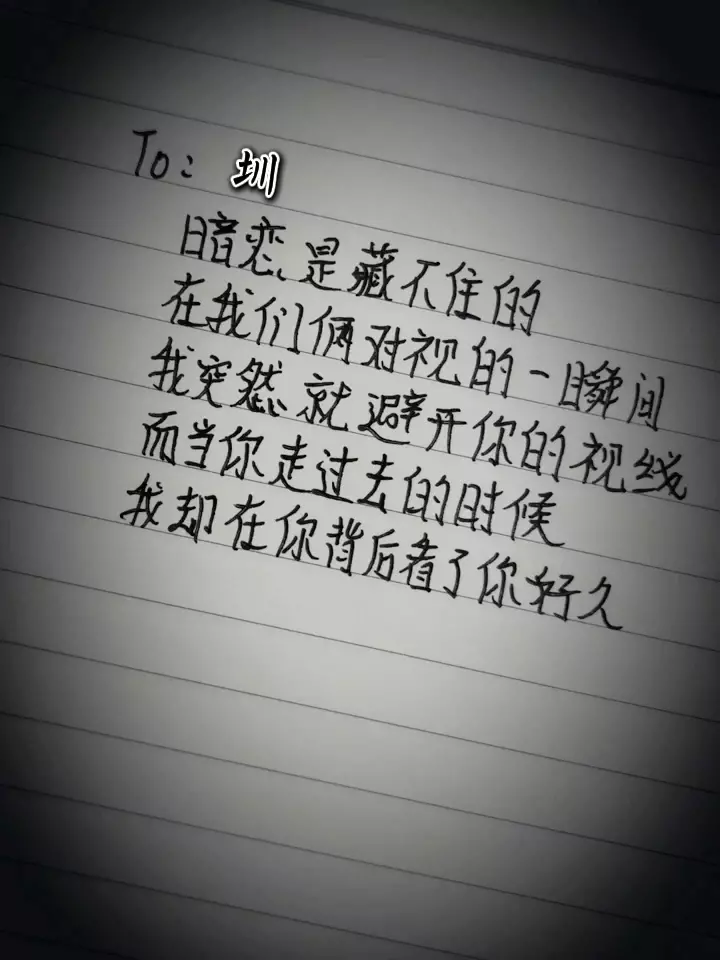 To: 圳
暗恋是藏不住的
在我们俩对视的一瞬间
我突然就避开你的视线
而当你走过去的时候
我却在你背后看了你好久